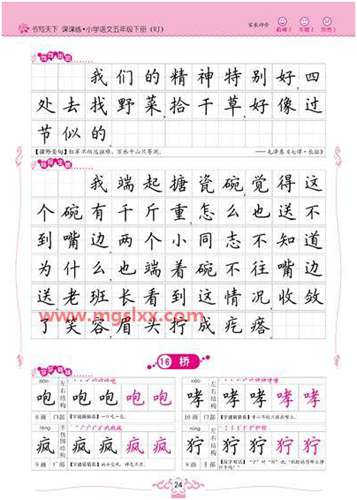 书写天下 课课练·小学语文五年级下册(RJ)
我们的精神特别好,四
处去找野菜,拾干草,好像过
节似的。
【课外美句】红军不怕远征难,万水千山只等闲。 ——毛泽东《七律·长征》
我端起搪瓷碗,觉得这
个碗有千斤重,怎么也送不
到嘴边。两个小同志不知道
为什么,也端着碗不往嘴边
送。老班长看到这情况,收敛
了笑容,眉头拧成疙瘩:
www.mgslxx.com
16 桥
páo
咆 咆 咆 咆 咆
左右结构
8画 口部
哮 哮 哮 哮 哮
左右结构
10画 口部
fēng
疯 疯 疯 疯 疯
半包围结构
9画 疒部
狞 狞 狞 狞 狞
左右结构
8画 犭部
24